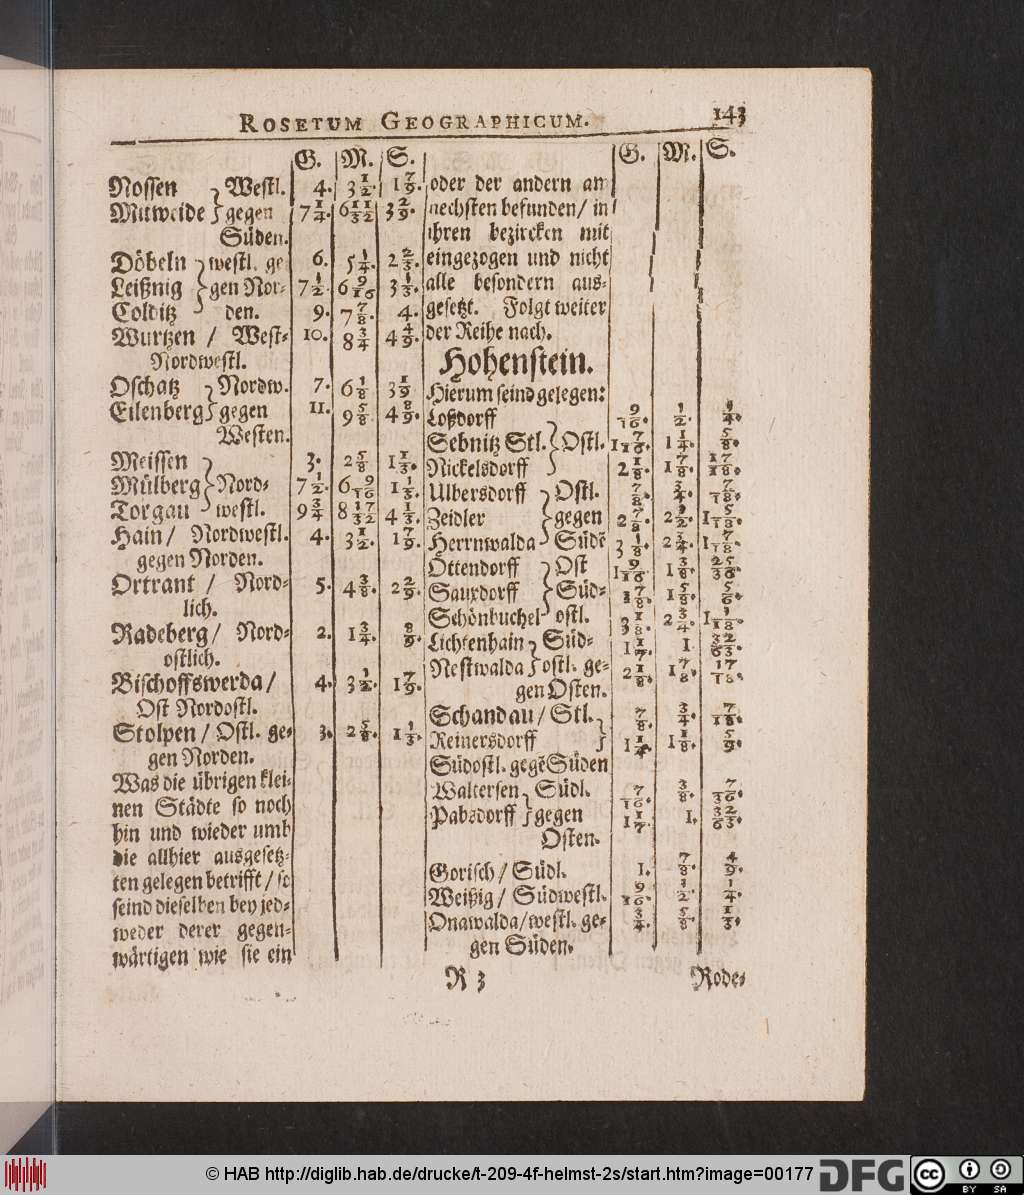 ROSETUM GEOGRAPHICUM. 143
G. M. S.
Nossen } Westl. 4. 3 1/2. 1 7/9.
Mitweide } gegen 7 1/4. 6 11/32 3 2/9.
Süden.
Döbeln } westl. ge 6. 5 1/4. 2 2/3.
Leißnig } gen Nor- 7 1/2. 6 9/16 3 1/3.
Colditz } den. 9. 7 7/8. 4.
Wurtzen / West- 10. 8 3/4 4 4/9.
Nordwestl.
Oschatz } Nordw. 7. 6 1/8 3 1/9
Eilenberg } gegen 11. 9 5/8. 4 8/9.
Westen.
Meissen } 3. 2 5/8 1 1/3.
Mülberg } Nord- 7 1/2. 6 9/16 1 1/3.
Torgau } westl. 9 3/4 8 17/32 4 1/3.
Hain / Nordwestl. 4. 3 1/2. 1 7/9.
gegen Norden.
Ortrant / Nord- 5. 4 3/8. 2 2/9.
lich.
Radeberg / Nord- 2. 1 3/4. 8/9.
ostlich.
Bischoffswerda / 4. 3 1/2. 1 7/9.
Ost Nordostl.
Stolpen / Ostl. ge- 3. 2 5/8. 1 1/3.
gen Norden.
Was die übrigen klei-
nen Städte so noch
hin und wieder umb
die allhier ausgesetz-
ten gelegen betrifft / so
seind dieselben bey jed-
weder derer gegen-
wärtigen wie sie ein
G. M. S.
oder der andern am
nechsten befunden / in
ihren bezircken mit
eingezogen und nicht
alle besondern aus-
gesetzt. Folgt weiter
der Reihe nach.
Hohenstein.
Hierum seind gelegen:
Loßdorff 9/16. 1/2. 1/4.
Sebnitz Stl. } Ostl. 1 7/16. 1 1/4. 5/8.
Nickelsdorff } 2 1/8. 1 7/8. 17/18.
Ulbersdorff } Ostl. 7/8. 3/4. 7/18.
Zeidler } gegen 2 7/8. 2 1/2. 1 5/18.
Herrnwalda } Südẽ 3 1/8. 2 3/4. 1 7/18.
Ottendorff } Ost 1 9/16. 1 3/8. 25/36.
Saupdorff } Süd- 1 7/8. 1 5/8. 5/6.
Schönbuchel } ostl. 3 1/8. 2 3/4. 1 1/18.
Lichtenhain } Süd- 1. 23/36.
Nestwalda } ostl. ge- 2 1/8. 1 7/8 17/18.
gen Osten.
Schandau / Stl. } 7/8. 3/4. 7/18.
Reinersdorff } 1 1/4. 1 1/8. 5/9.
Südostl. gegẽ Süden
Waltersen } Südl. 7/16. 3/8. 7/36.
Pabsdorff } gegen 1. 23/36.
Osten.
Gorisch / Südl. 1. 7/8. 4/9.
Weißig / Südwestl. 9/16. 1/2. 1/4.
Onawalda / westl. ge- 3/4. 5/8. 1/3.
gen Süden.
R 3 Rode-
© HAB http://diglib.hab.de/drucke/t-209-4f-helmst-2s/start.htm?image=00177
DFG
cc BY SA